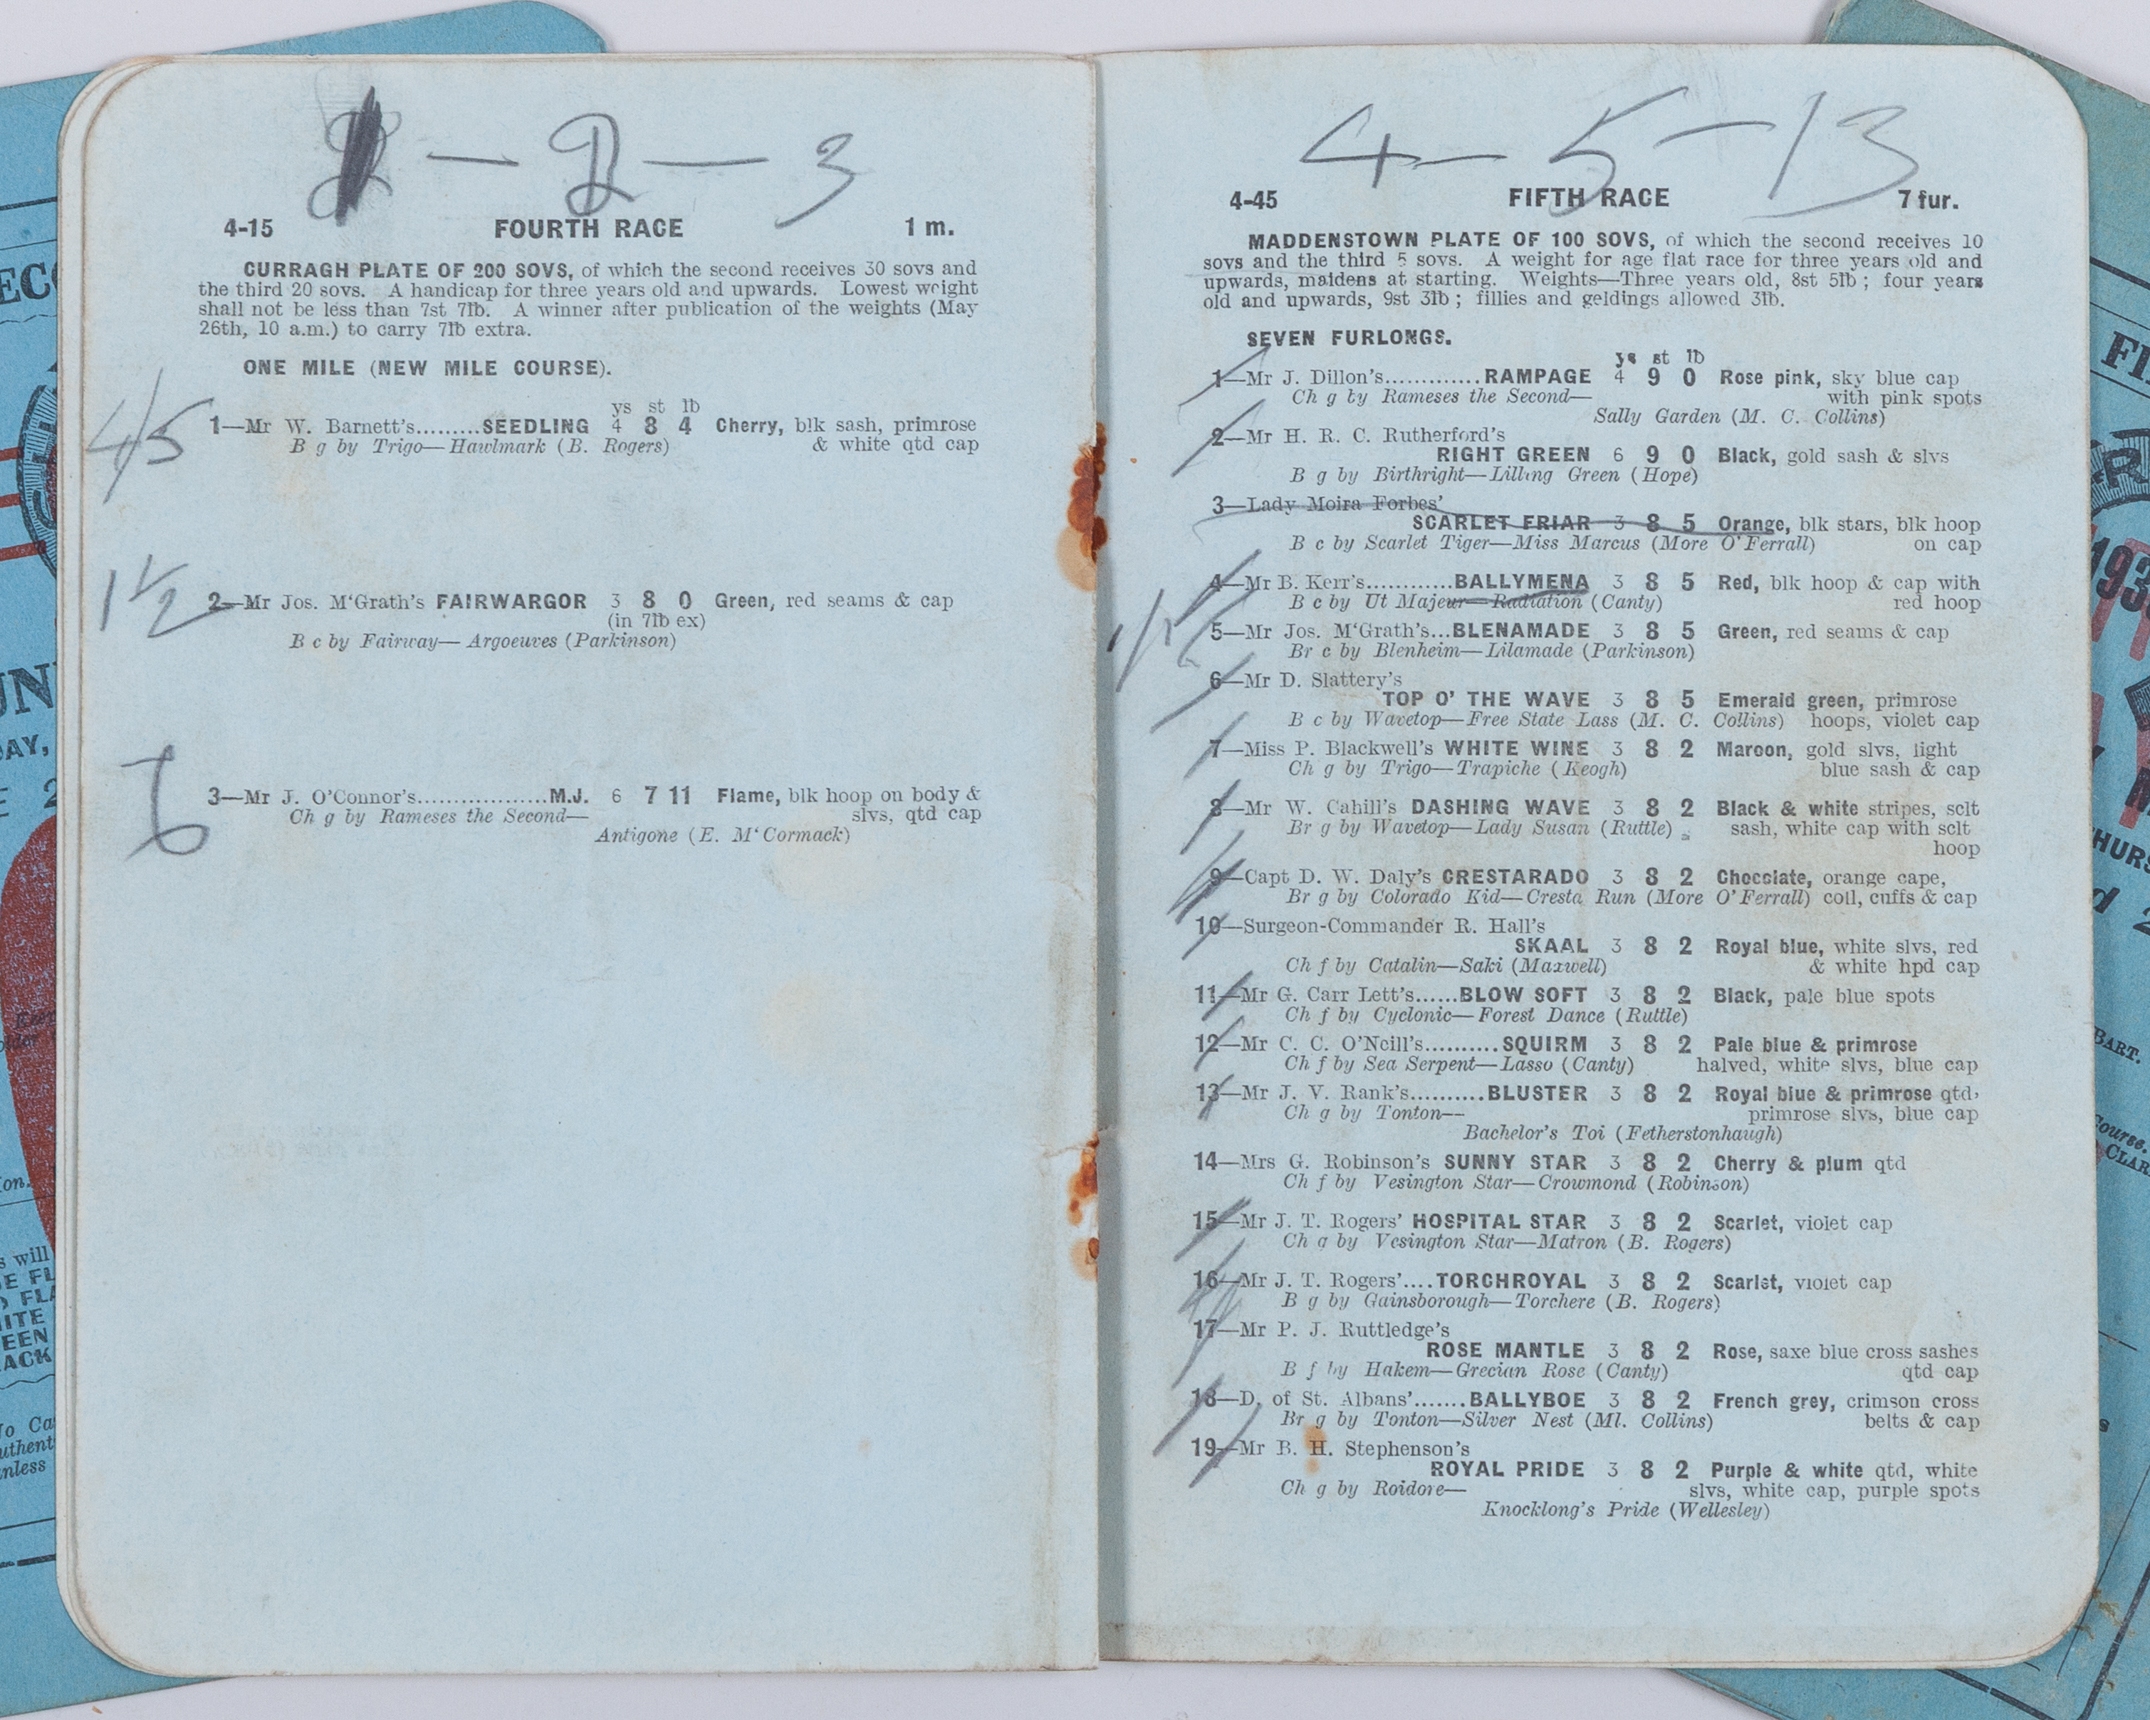 1 — 2 — 3
4-15 FOURTH RACE 1 m.
CURRAGH PLATE OF 200 SOVS, of which the second receives 30 sovs and
the third 20 sovs. A handicap for three years old and upwards. Lowest weight
shall not be less than 7st 7lb. A winner after publication of the weights (May
26th, 10 a.m.) to carry 7lb extra.
ONE MILE (NEW MILE COURSE).
ys st lb
4/5 1—Mr W. Barnett's.........SEEDLING 4 8 4 Cherry, blk sash, primrose
B g by Trigo—Hawlmark (B. Rogers) & white qtd cap
1½ 2—Mr Jos. M'Grath's FAIRWARGOR 3 8 0 Green, red seams & cap
(in 7lb ex)
B c by Fairway—Argoeuves (Parkinson)
6 3—Mr J. O'Connor's..................M.J. 6 7 11 Flame, blk hoop on body &
Ch g by Rameses the Second— slvs, qtd cap
Antigone (E. M'Cormack)
4 — 5 — 13
4-45 FIFTH RACE 7 fur.
MADDENSTOWN PLATE OF 100 SOVS, of which the second receives 10
sovs and the third 5 sovs. A weight for age flat race for three years old and
upwards, maidens at starting. Weights—Three years old, 8st 5lb; four years
old and upwards, 9st 3lb; fillies and geldings allowed 3lb.
SEVEN FURLONGS.
ys st lb
1—Mr J. Dillon's.............RAMPAGE 4 9 0 Rose pink, sky blue cap
Ch g by Rameses the Second— with pink spots
Sally Garden (M. C. Collins)
2—Mr H. R. C. Rutherford's
RIGHT GREEN 6 9 0 Black, gold sash & slvs
B g by Birthright—Lilling Green (Hope)
3—Lady Moira Forbes'
SCARLET FRIAR 3 8 5 Orange, blk stars, blk hoop
B c by Scarlet Tiger—Miss Marcus (More O'Ferrall) on cap
4—Mr B. Kerr's............BALLYMENA 3 8 5 Red, blk hoop & cap with
B c by Ut Majeur—Radiation (Canty) red hoop
5—Mr Jos. M'Grath's...BLENAMADE 3 8 5 Green, red seams & cap
Br c by Blenheim—Lilamade (Parkinson)
6—Mr D. Slattery's
TOP O' THE WAVE 3 8 5 Emerald green, primrose
B c by Wavetop—Free State Lass (M. C. Collins) hoops, violet cap
7—Miss P. Blackwell's WHITE WINE 3 8 2 Maroon, gold slvs, light
Ch g by Trigo—Trapiche (Keogh) blue sash & cap
8—Mr W. Cahill's DASHING WAVE 3 8 2 Black & white stripes, sclt
Br g by Wavetop—Lady Susan (Ruttle) sash, white cap with sclt
hoop
9—Capt D. W. Daly's CRESTARADO 3 8 2 Chocolate, orange cape,
Br g by Colorado Kid—Cresta Run (More O'Ferrall) coll, cuffs & cap
10—Surgeon-Commander R. Hall's
SKAAL 3 8 2 Royal blue, white slvs, red
Ch f by Catalin—Saki (Maxwell) & white hpd cap
11—Mr G. Carr Lett's......BLOW SOFT 3 8 2 Black, pale blue spots
Ch f by Cyclonic—Forest Dance (Ruttle)
12—Mr C. C. O'Neill's..........SQUIRM 3 8 2 Pale blue & primrose
Ch f by Sea Serpent—Lasso (Canty) halved, white slvs, blue cap
13—Mr J. V. Rank's..........BLUSTER 3 8 2 Royal blue & primrose qtd,
Ch g by Tonton— primrose slvs, blue cap
Bachelor's Toi (Fetherstonhaugh)
14—Mrs G. Robinson's SUNNY STAR 3 8 2 Cherry & plum qtd
Ch f by Vesington Star—Crowmond (Robinson)
15—Mr J. T. Rogers' HOSPITAL STAR 3 8 2 Scarlet, violet cap
Ch g by Vesington Star—Matron (B. Rogers)
16—Mr J. T. Rogers'....TORCHROYAL 3 8 2 Scarlet, violet cap
B g by Gainsborough—Torchere (B. Rogers)
17—Mr P. J. Ruttledge's
ROSE MANTLE 3 8 2 Rose, saxe blue cross sashes
B f by Hakem—Grecian Rose (Canty) qtd cap
18—D. of St. Albans'.......BALLYBOE 3 8 2 French grey, crimson cross
Br g by Tonton—Silver Nest (Ml. Collins) belts & cap
19—Mr B. H. Stephenson's
ROYAL PRIDE 3 8 2 Purple & white qtd, white
Ch g by Roidore— slvs, white cap, purple spots
Knocklong's Pride (Wellesley)